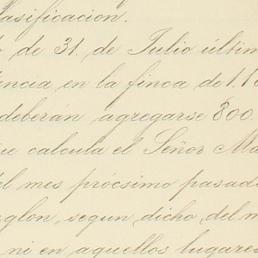 lasificacion.
de 31. de Julio últim
encia en la finca de 1.1
deberán agregarse 800
calcula el Señor Ma
el mes prócsimo pasad
eglon, segun dicho del m
ni en aquellos lugares